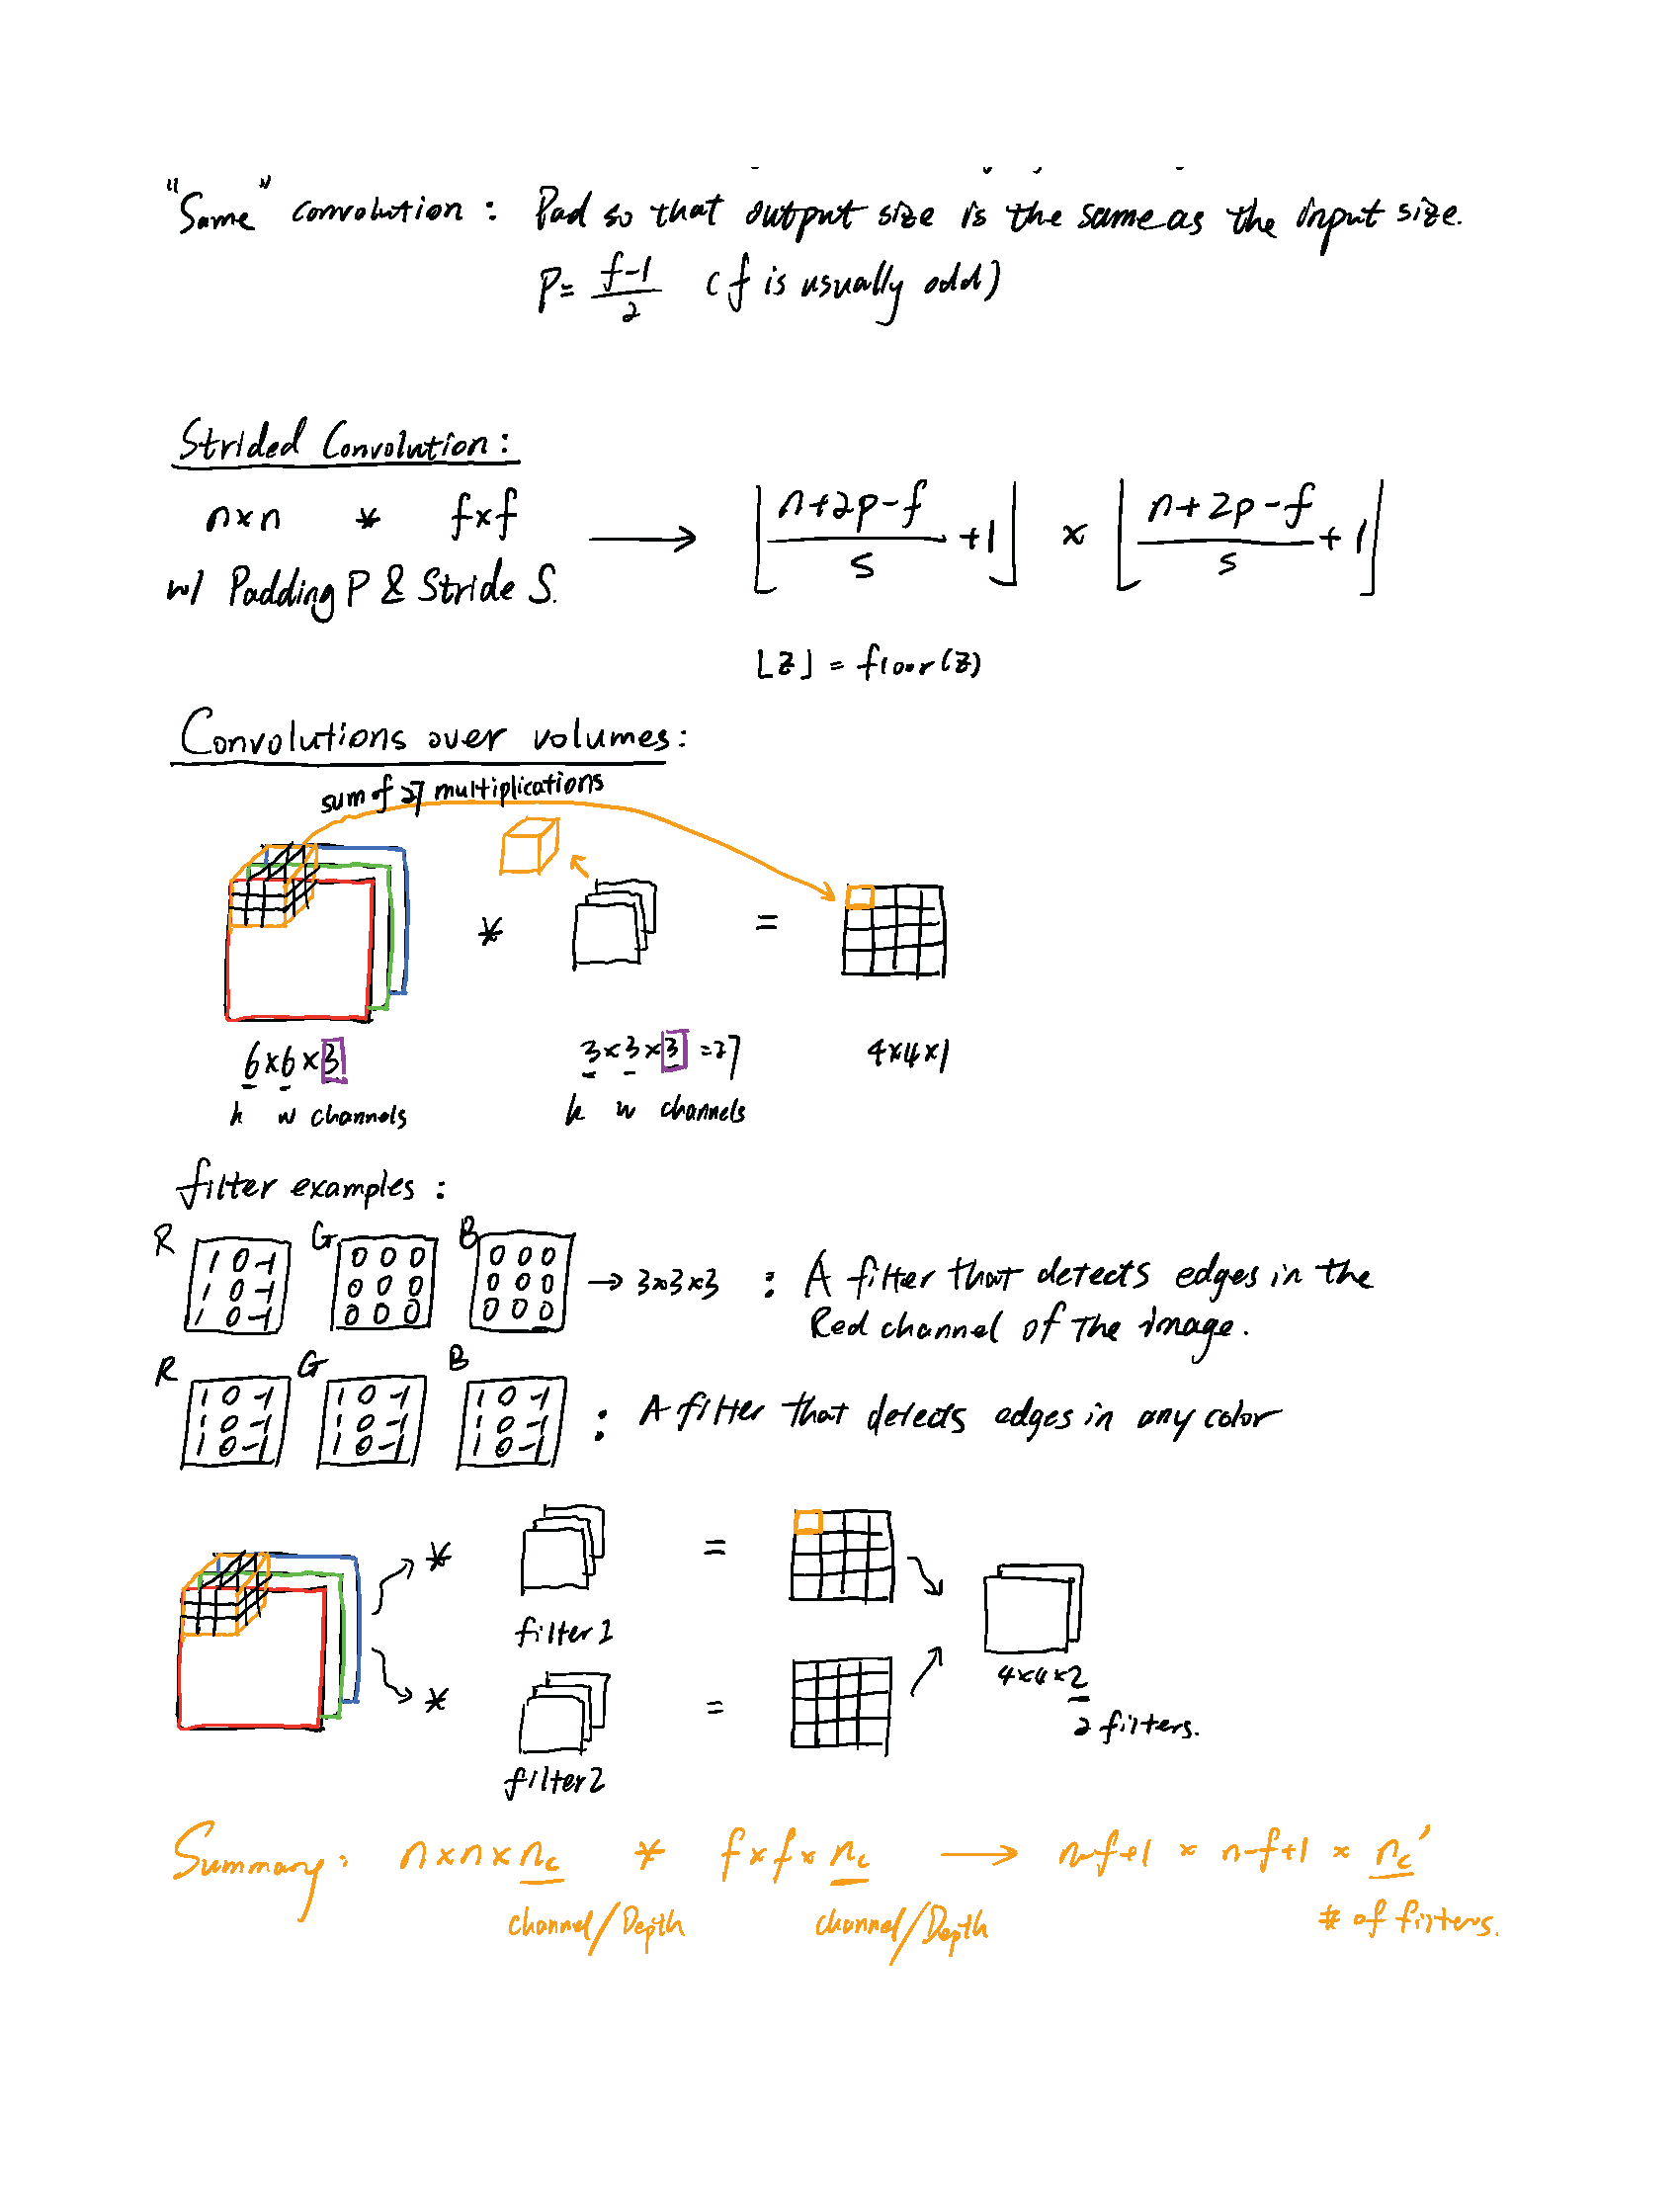 "Same" convolution : Pad so that output size is the same as the input size.
P = f-1 / 2 ( f is usually odd )
Strided Convolution :
n×n * f×f → ⌊ n+2p-f / s +1 ⌋ × ⌊ n+2p-f / s + 1 ⌋
w/ Padding P & Stride S.
⌊Z⌋ = floor(Z)
Convolutions over volumes :
sum of 27 multiplications
* =
6×6×3 3×3×3 =27 4×4×1
h w channels h w channels
filter examples :
R G B
1 0 -1 0 0 0 0 0 0
1 0 -1 0 0 0 0 0 0 → 3×3×3 : A filter that detects edges in the
1 0 -1 0 0 0 0 0 0 Red channel of the image.
R G B
1 0 -1 1 0 -1 1 0 -1
1 0 -1 1 0 -1 1 0 -1 : A filter that detects edges in any color
1 0 -1 1 0 -1 1 0 -1
* =
filter 1
4×4×2
* =
2 filters.
filter 2
Summary : n×n×nc * f×f×nc → n-f+1 × n-f+1 × nc'
channel/Depth channel/Depth # of filters.